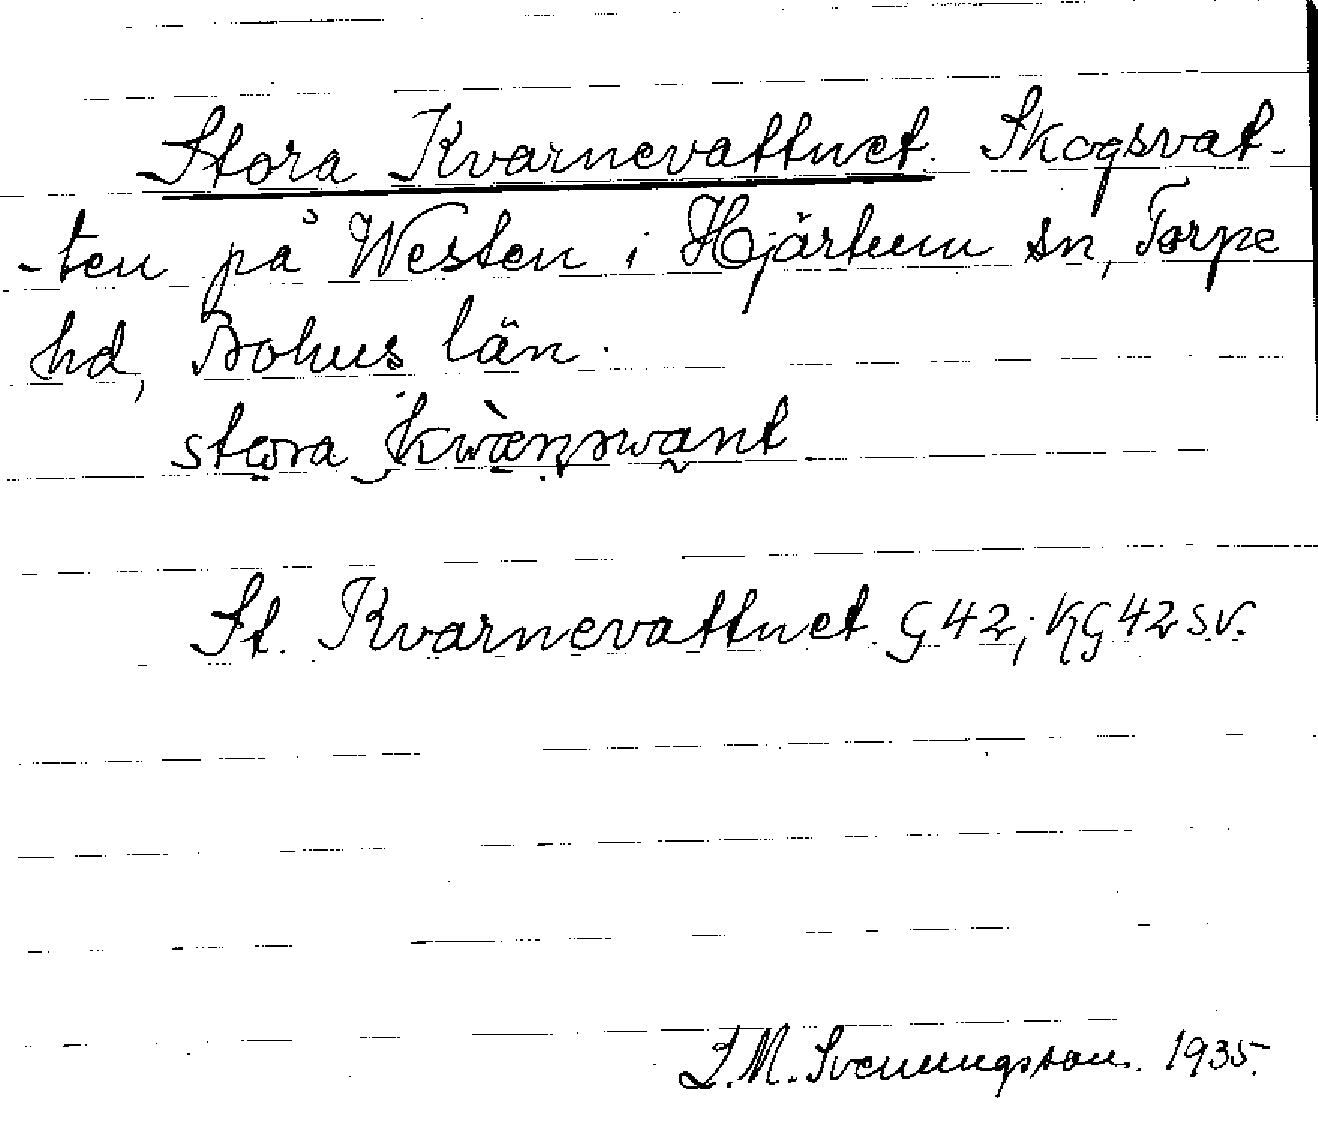 Stora Kvarnevattnet. Skogsvat-
-ten på Westen i Hjärtum sn, Torpe
hd, Bohus län.
stora
St. Kvarnevattnet G42; KG42 SV.
J.M. Svenungsson. 1935.